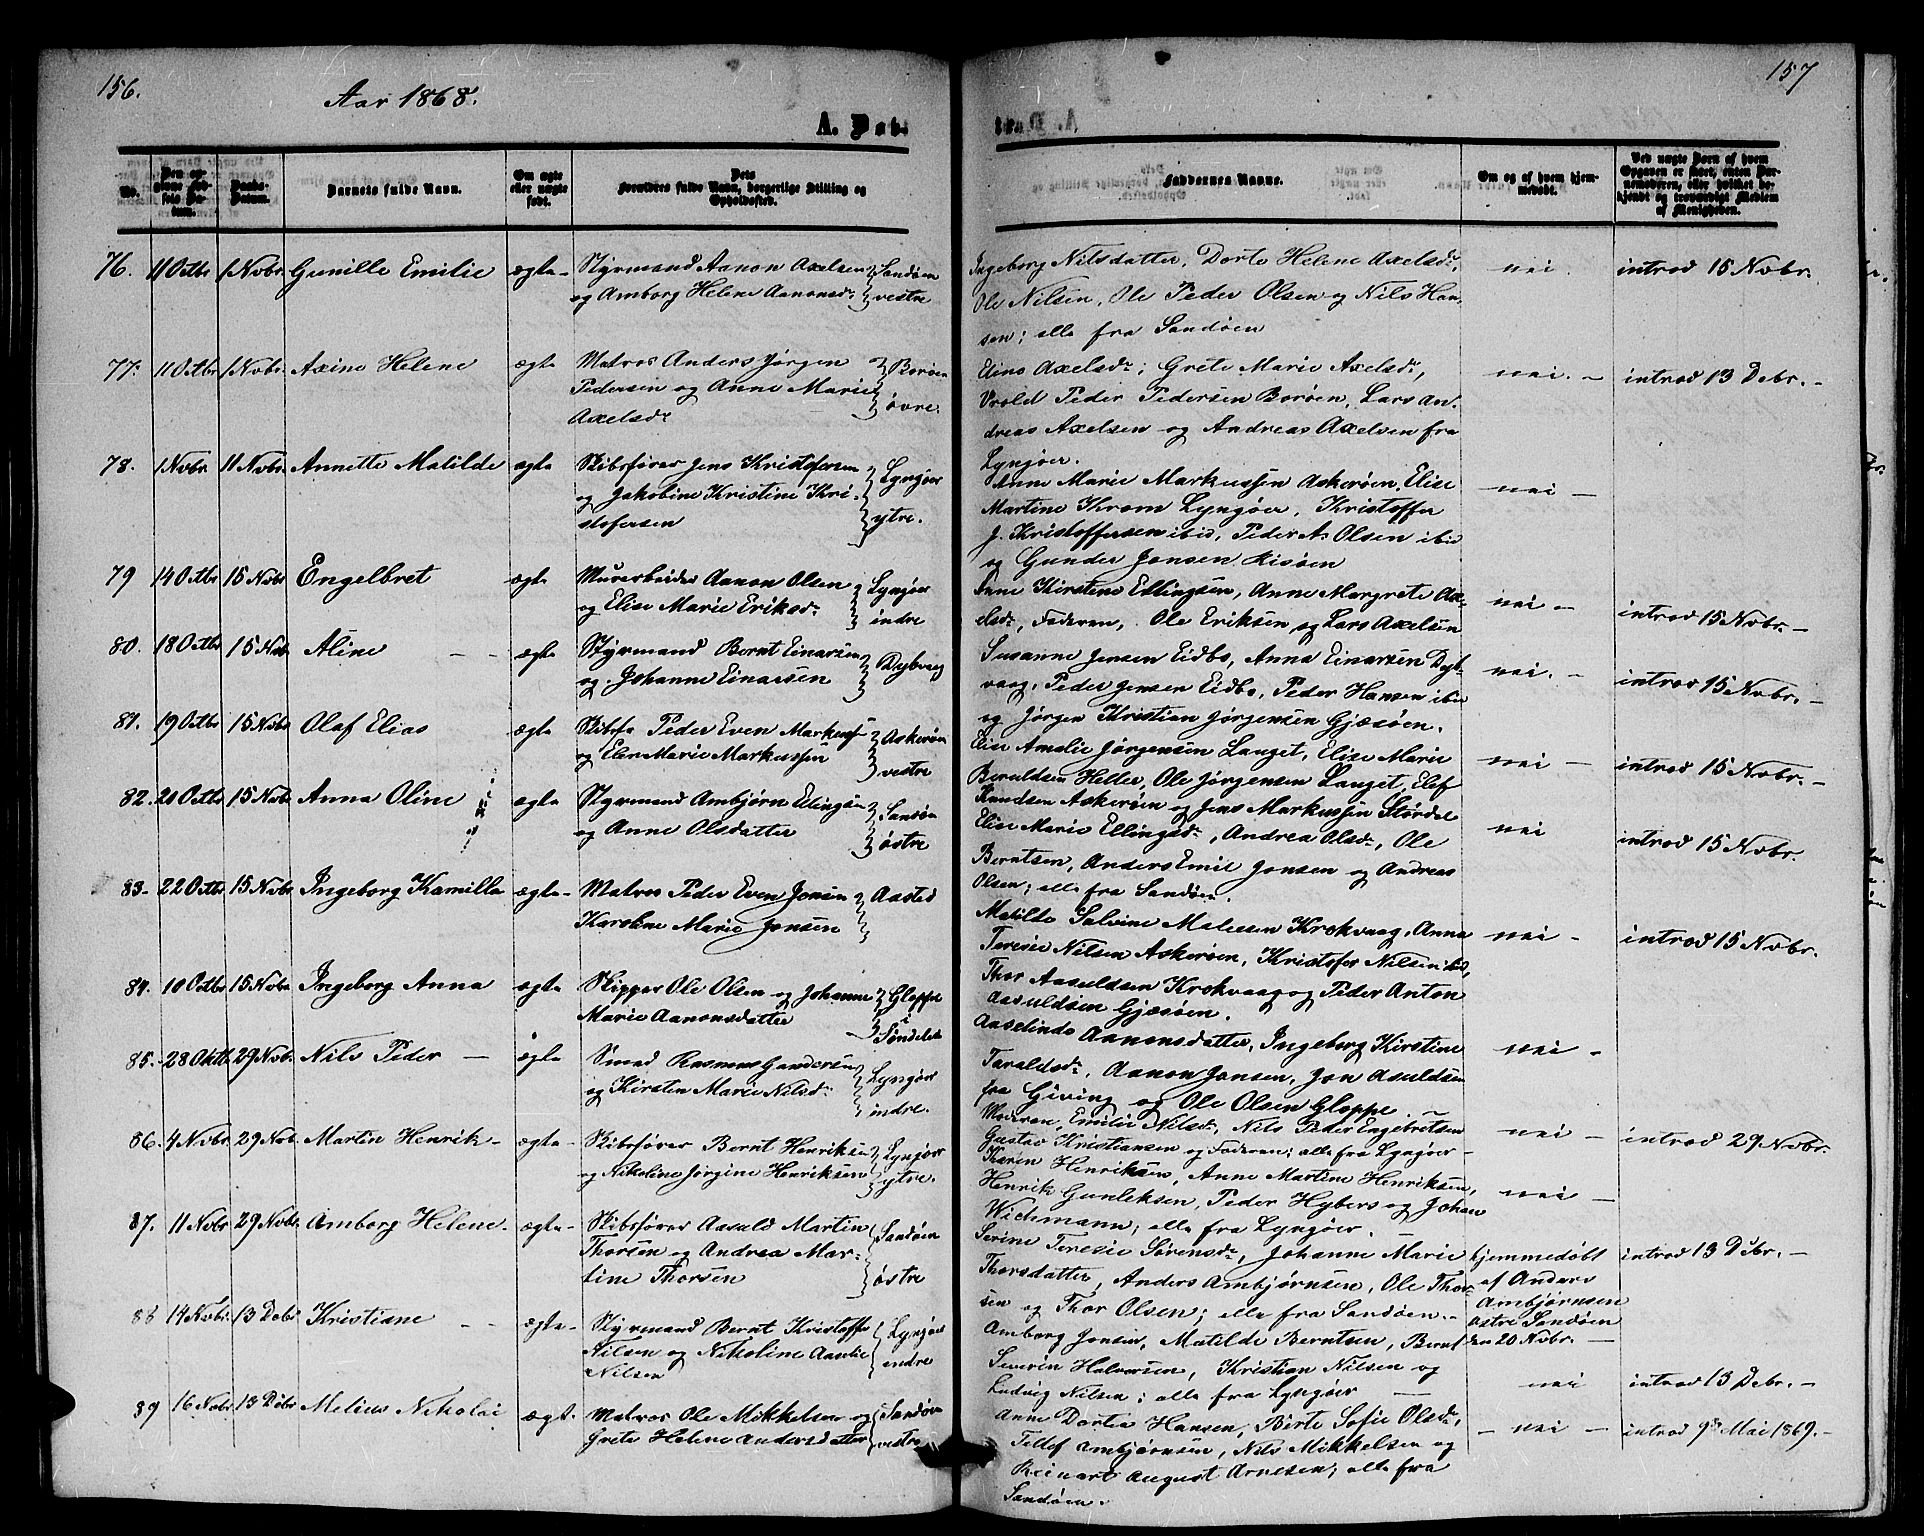 156.
Aar 1868.
A. Døb.
No.
Den opgivne Fødsels Datum.
Daabs-Datum.
Barnets fulde Navn.
Om ægte eller uægte født.
Dets Forældres fulde Navn, borgerlige Stilling og Opholdssted.
76. 11 Octbr 1 Novbr. Gunille Emilie ægte- Styrmand Aanon Axelsen Sandøen
og Amborg Helene Aanonsdr vestre
77. 11 Octbr 1 Novbr. Axine Helene ægte Matros Anders Jørgen Borøen
Pedersen og Anne Marie øvre.
Axelsdr
78. 1 Novbr 11 Novbr. Annette Matilde ægte Skibsfører Jens Kristofersen Lyngøer
og Jakobine Kristine Kri- ytre.
stofersen
79 14 Octbr 15 Novbr Engelbret ægte Murarbeider Aanon Olsen Lyngøer
og Elise Marie Eriksdr indre
80. 18 Octbr 15 Novbr Aline - - ægte Styrmand Bernt Einarsen Dybvaag
og Johanne Einarsen
81. 19 Octbr 15 Novbr Olaf Elias ægte Skibsf Peder Even Markuss Askerøen
og Elen Marie Markussen vestre
82. 20 Octbr 15 Novbr. Anna Oline ægte Styrmand Ambjørn Ellingsen Sandøen
og Anne Olsdatter østre
83- 22 Octbr 15 Novbr. Ingeborg Kamilla ægte- Matros Peder Even Jonsen Aasted
Karoline Marie Jonsen
84. 10 Octbr 15 Novbr Ingeborg Anna ægte Skipper Ole Olsen og Johanne Gloppe
Marie Aanonsdatter i Søndeled
85.- 28 Oktb 29 Novbr. Nils Peder - ægte Smed Rasmus Gundersen Lyngøer
og Kirsten Marie Nilsdr indre.
86. 4 Novbr. 29 Novb. Martin Henrik- ægte- Skibsfører Bernt Henriksen Lyngøer
og Nikoline Jørgine Henriksen ytre.
87. 11 Novbr 29 Novbr. Amborg Helene- ægte- Skibsfører Aasuld Martin Sandøen
Thorsen og Andrea Mar- østre
tine Thorsen
88 14 Novbr. 13 Debr Kristiane - - ægte- Styrmand Bernt Kristoffer Lyngøer
Nilsen og Nikoline Aaselie indre
Nilsen
89 16 Novbr. 13 Debr Melius Nikolai ægt- Matros Ole Mikkelsen og Sandøen
Grete Helene Andersdatter vestre
157
A. Døb
Faddernes Navne.
Om og af hvem hjemmedøbt.
Ved uægte Børn af hvem Opgaven er skeet, enten Barnemoderen, eller hvilket bekjendt og troværdigt Medlem af Menigheden.
Ingeborg Nilsdatter, Dorte Helene Axelsdr, nei. introd 15 Novbr.
Ole Nilsen, Ole Peder Olsen og Nils Han-
sen; alle fra Sandøen
Eline Axelsdr; Grete Marie Axelsdr, nei. - introd 13 Debr. -
Vrold Peder Pedersen Borøen, Lars An-
dreas Axelsen og Andreas Axelsen fra
Lyngøer.
Anne Marie Markussen Askerøen, Elise nei -
Martine Krom Lyngøer, Kristoffer
J. Kristoffersen ibid, Peder A. Olsen ibid
og Gunder Jensen Risøen
Anne Kirstine Ellingsen, Anne Margrete Ax- nei -
elsdr, Faderen, Ole Eriksen og Lars Axelsen introd 15 Novbr. -
Susanne Jensen Eidbo, Anna Einarsen Dyb- nei. -
vaag, Peder Jensen Eidbo, Peder Hansen ibid introd 15 Novbr. -
og Jørgen Kristian Jørgensen Gjæsøen.
Elise Amalie Jørgensen Lauget, Elise Marie nei -
Beruldsen Helle, Ole Jørgensen Lauget, Elef introd 15 Novbr. -
Knudsen Askerøen og Jens Markussen Størdal
Elise Marie Ellingsdr, Andrea Olsdr, Ole nei introd 15 Novbr.
Berntsen, Anders Emil Jonsen og Andreas
Olsen; alle fra Sandøen.
Matilde Salvine Malessen Krokvaag, Anna nei - introd 15 Novbr.
Teresie Nilsen Askerøen, Kristofer Nilsen ibid,
Thor Aasuldsen Krokvaag og Peder Anton
Aasuldsen Gjæsøen.
Aaselinde Aanonsdatter, Ingeborg Kirstine nei -
Taraldsdr, Aanon Jansen, Jon Asuldsen
fra Giving og Ole Olsen Gloppe.
Moeren, Emilie Nilsdr, Nils Peder Engebretsen nei - introd 29 Novbr.
Gustav Kristiansen og Faderen; alle fra Lyngøer -
Karen Henriksen, Anne Martine Henriksen,
Henrik Gunleksen, Peder Hybers og Johan nei -
Wichmann; alle fra Lyngøer.
Serine Teresie Sørensdr, Johanne Marie hjemmedøbt introd 13 Debr. -
Thorsdatter, Anders Ambjørnsen, Ole Thor- af Anders
sen og Thor Olsen; alle fra Sandøen. - Ambjørnsen
Amborg Jensen, Matilde Berntsen, Bernt østre Sandøen
den 20 Novbr. -
Severin Halvorsen, Kristian Nilsen og
Ludvig Nilsen; alle fra Lyngøer - nei introd 13 Debr. -
Anne Dortea Hansen, Birte Sofie Olsdr, - nei - introd 9de Mai 1869. -
Tellef Ambjørnsen, Nils Mikkelsen og
Reinart August Arnesen; alle fra
Sandøen.